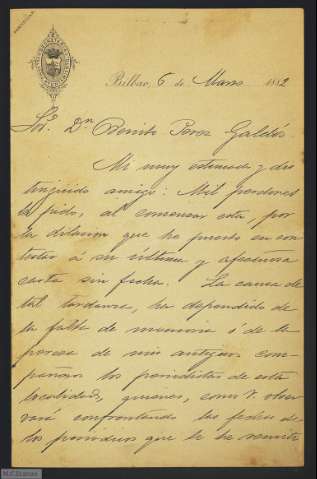 Bilbao, 6 de Marzo 1882
Sor. Dn. Benito Perez Galdós.
Mi muy estimado y dis
tinguido amigo: Mil perdones
le pido, al comenzar esta, por
la dilacion que he puesto en con
testar a su última y afectuosa
carta sin fecha. La causa de
tal tardanza, ha dependido de
la falta de memoria ó de la
pereza de mis antiguos com
pañeros los periodistas de esta
localidad, quienes, como V. obser
vará confrontando las fechas de
los periódicos que le he remiti